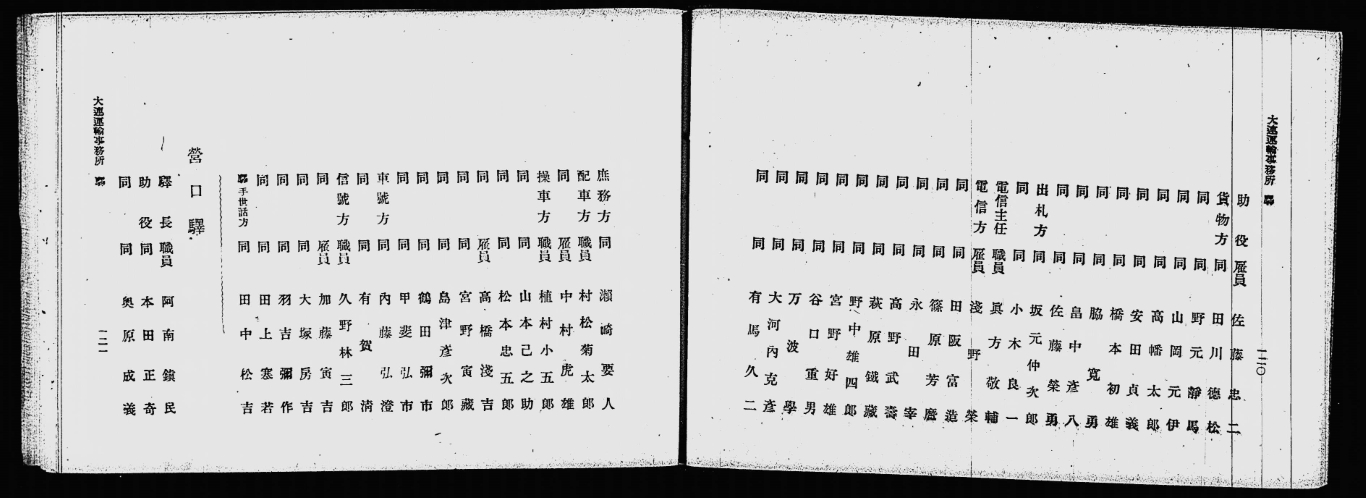 大連運輸事務所　驛
一二〇
助役　雇員　佐藤忠二
貨物方　同　田川德松
同　同　野元靜馬
同　同　山岡元伊
同　同　高幡太郎
同　同　安田貞義
同　同　橋本初雄
同　同　脇寬勇
同　同　畠中彥八
同　同　佐藤榮勇
出札方　同　坂元仲次郎
同　同　小木良一
電信主任　職員　眞方敬輔
電信方　雇員　淺野榮
同　同　田阪富造
同　同　篠原芳麿
同　同　永田宰
同　同　高野武壽
同　同　萩原鐵藏
同　同　野中雄四郎
同　同　宮野好雄
同　同　谷口重男
同　同　万波學
同　同　大河內克彥
同　同　有馬久二
庶務方　同　瀨崎要人
配車方　職員　村松菊太郎
同　雇員　中村虎雄
操車方　職員　植村小五郎
同　同　山本己之助
同　同　松本忠五郎
同　雇員　高橋淺吉
同　同　宮野寅藏
同　同　島津彥次郎
同　同　鶴田彌市
同　同　甲斐弘市
車號方　同　內藤弘澄
同　同　有賀淸
信號方　職員　久野林三郎
同　雇員　加藤寅吉
同　同　大塚房吉
同　同　羽吉彌作
同　同　田上寒若
驛手世話方　同　田中松吉
營口驛
驛長　職員　阿南鎭民
助役　同　本田正奇
同　同　奧原成義
大連運輸事務所　驛
一二一